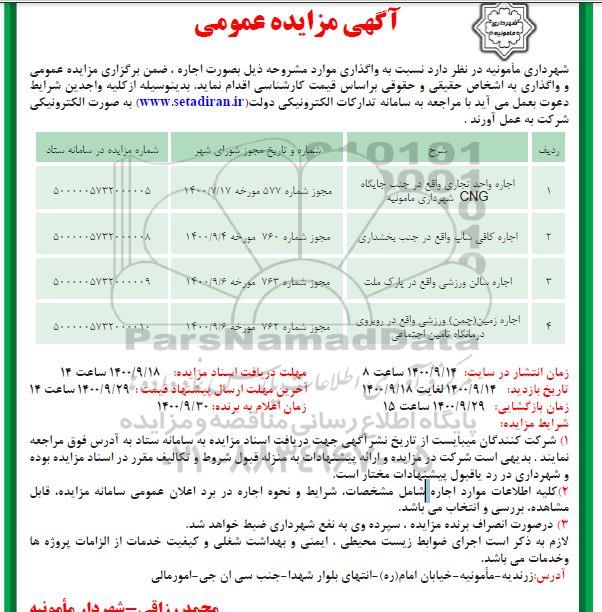 شهرداری
مامونیه
آگهی مزایده عمومی
شهرداری مأمونیه در نظر دارد نسبت به واگذاری موارد مشروحه ذیل بصورت اجاره ، ضمن برگزاری مزایده عمومی
و واگذاری به اشخاص حقیقی و حقوقی براساس قیمت کارشناسی اقدام نماید. بدینوسیله ازکلیه واجدین شرایط
دعوت بعمل می آید با مراجعه به سامانه تدارکات الکترونیکی دولت(www.setadiran.ir) به صورت الکترونیکی
شرکت به عمل آورند .
ردیف شرح شماره و تاریخ مجوز شورای شهر شماره مزایده در سامانه ستاد
۱ اجاره واحد تجاری واقع در جنب جایگاه CNG شهرداری مامونیه مجوز شماره ۵۷۷ مورخه ۱۴۰۰/۷/۱۷ ۵۰۰۰۰۰۵۷۳۲۰۰۰۰۰۵
۲ اجاره کافی شاپ واقع در جنب یخشداری مجوز شماره ۷۶۰ مورخه ۱۴۰۰/۹/۴ ۵۰۰۰۰۰۵۷۳۲۰۰۰۰۰۸
۳ اجاره سالن ورزشی واقع در پارک ملت مجوز شماره ۷۶۳ مورخه ۱۴۰۰/۹/۶ ۵۰۰۰۰۰۵۷۳۲۰۰۰۰۰۹
۴ اجاره زمین(چمن) ورزشی واقع در روبروی درمانگاه تامین اجتماعی مجوز شماره ۷۶۲ مورخه ۱۴۰۰/۹/۶ ۵۰۰۰۰۰۵۷۳۲۰۰۰۰۱۰
ParsNamadData
زمان انتشار در سایت: ۱۴۰۰/۹/۱۴ ساعت ۸ مهلت دریافت اسناد مزایده : ۱۴۰۰/۹/۱۸ ساعت ۱۴
تاریخ بازدید: ۱۴۰۰/۹/۱۴ لغایت ۱۴۰۰/۹/۱۸ آخرین مهلت ارسال پیشنهاد قیمت : ۱۴۰۰/۹/۲۹ ساعت ۱۴
زمان بازگشایی: ۱۴۰۰/۹/۲۹ ساعت ۱۵ زمان اعلام به برنده: ۱۴۰۰/۹/۳۰
پایگاه اطلاع رسانی مناقصه و مزایده
شرایط مزایده:
۱) شرکت کنندگان میبایست از تاریخ نشر آگهی جهت دریافت اسناد مزایده به سامانه ستاد به آدرس فوق مراجعه
نمایند . بدیهی است شرکت در مزایده و ارائه پیشنهادات به منزله قبول شروط و تکالیف مقرر در اسناد مزایده بوده
و شهرداری در رد یاقبول پیشنهادات مختار است.
۲)کلیه اطلاعات موارد اجاره شامل مشخصات، شرایط و نحوه اجاره در برد اعلان عمومی سامانه مزایده، قابل
مشاهده، بررسی و انتخاب می باشد.
۳) درصورت انصراف برنده مزایده ، سپرده وی به نفع شهرداری ضبط خواهد شد.
لازم به ذکر است اجرای ضوابط زیست محیطی ، ایمنی و بهداشت شغلی و کیفیت خدمات از الزامات پروژه ها
وخدمات می باشد.
آدرس:زرندیه-مأمونیه-خیابان امام(ره)-انتهای بلوار شهدا-جنب سی ان جی-امورمالی
محمد رزاقی-شهردار مأمونیه